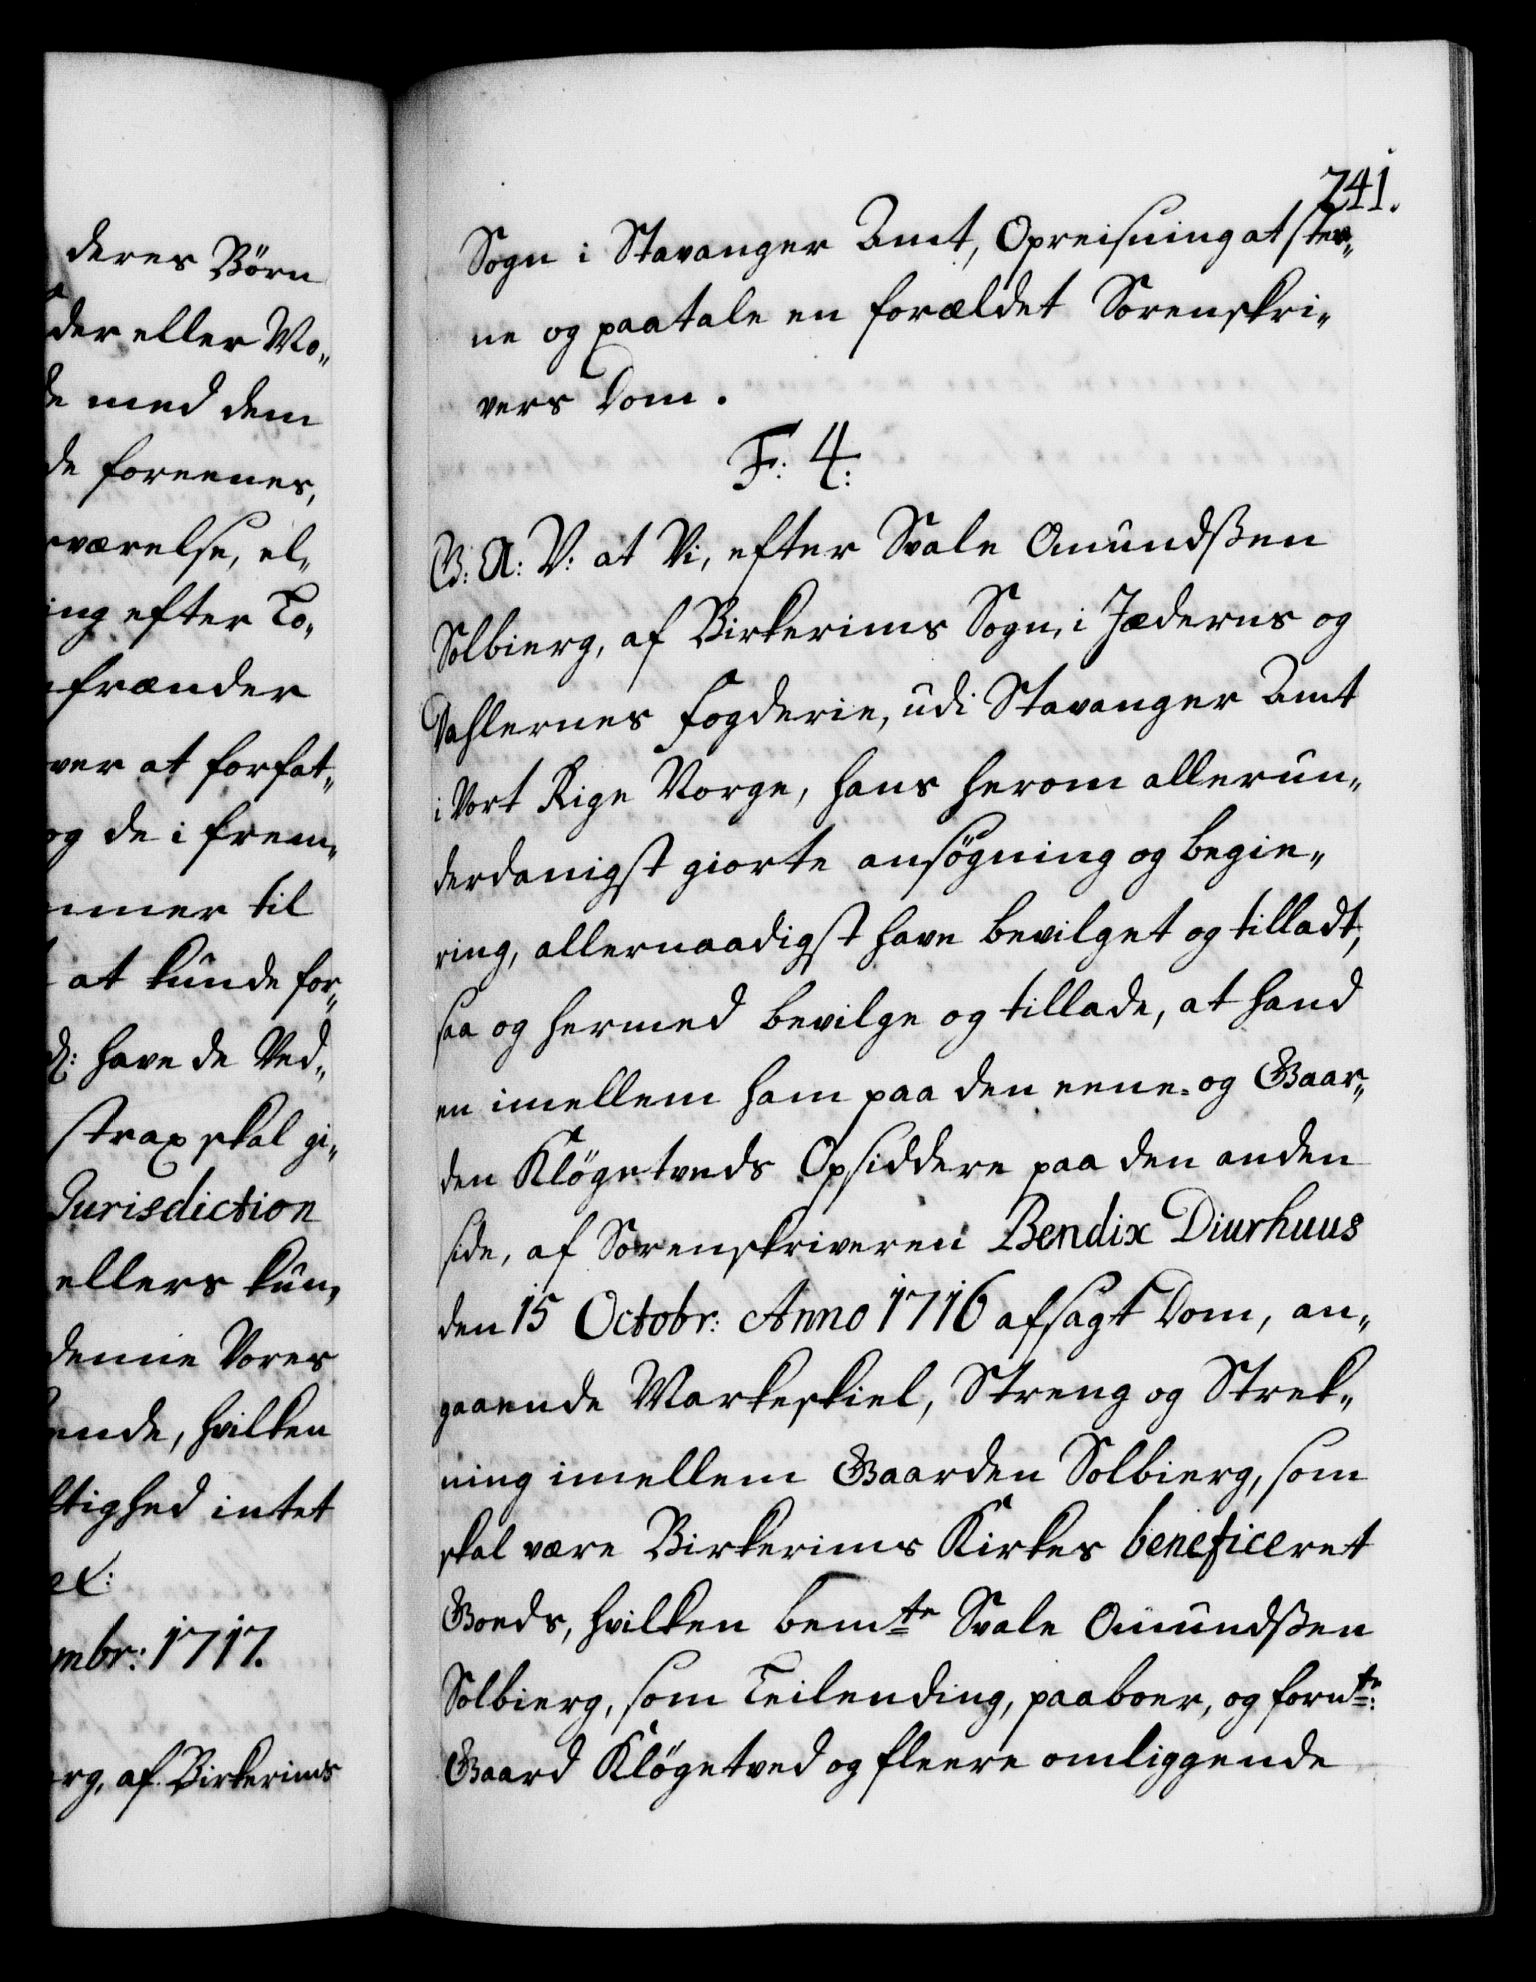 deres Børn
der eller Mo„
de med dem
de foreenes,
værelse, el„
ing efter To„
frænder
ver at forfat„
og de i frem„
mmer til
at kunde for„
d: have de Ved„
strax skal gi„
Jurisdiction
ellers kun„
denne Vores
ende, hvilken
ltighed intet
mbr: 1717.
rg, af Birkerims
241.
Sogn i Stavanger Amt, Opreisning at stev„
ne og paatale en forældet Sorenskri„
vers Dom.
F: 4:
G: A: V: at Vi, efter Svale Omundsßen
Solbierg, af Birkerims Sogn, i Jæderns og
Dahlernes Fogderie, udi Stavanger Amt
i Vort Rige Norge, hans herom allerun„
derdanigst giorte ansøgning og begie„
ring, allernaadigst have bevilget og tilladt,
saa og hermed bevilge og tillade, at hand
en imellem ham paa den eene- og Gaar„
den Kløgetveds Opsiddere paa den anden
side, af Sorenskriveren Bendix Diurhuus
den 15 Octobr: Anno 1716 afsagt Dom, an„
gaaende Markeskiel, Streng og Strek„
ning imellem Gaarden Solbierg, som
skal være Birkerims Kirkes beneficeret
Goeds, hvilken bemte Svale Omundsßen
Solbierg, som Leilending, paaboer, og fornte:
Gaard Kløgetved og fleere omliggende